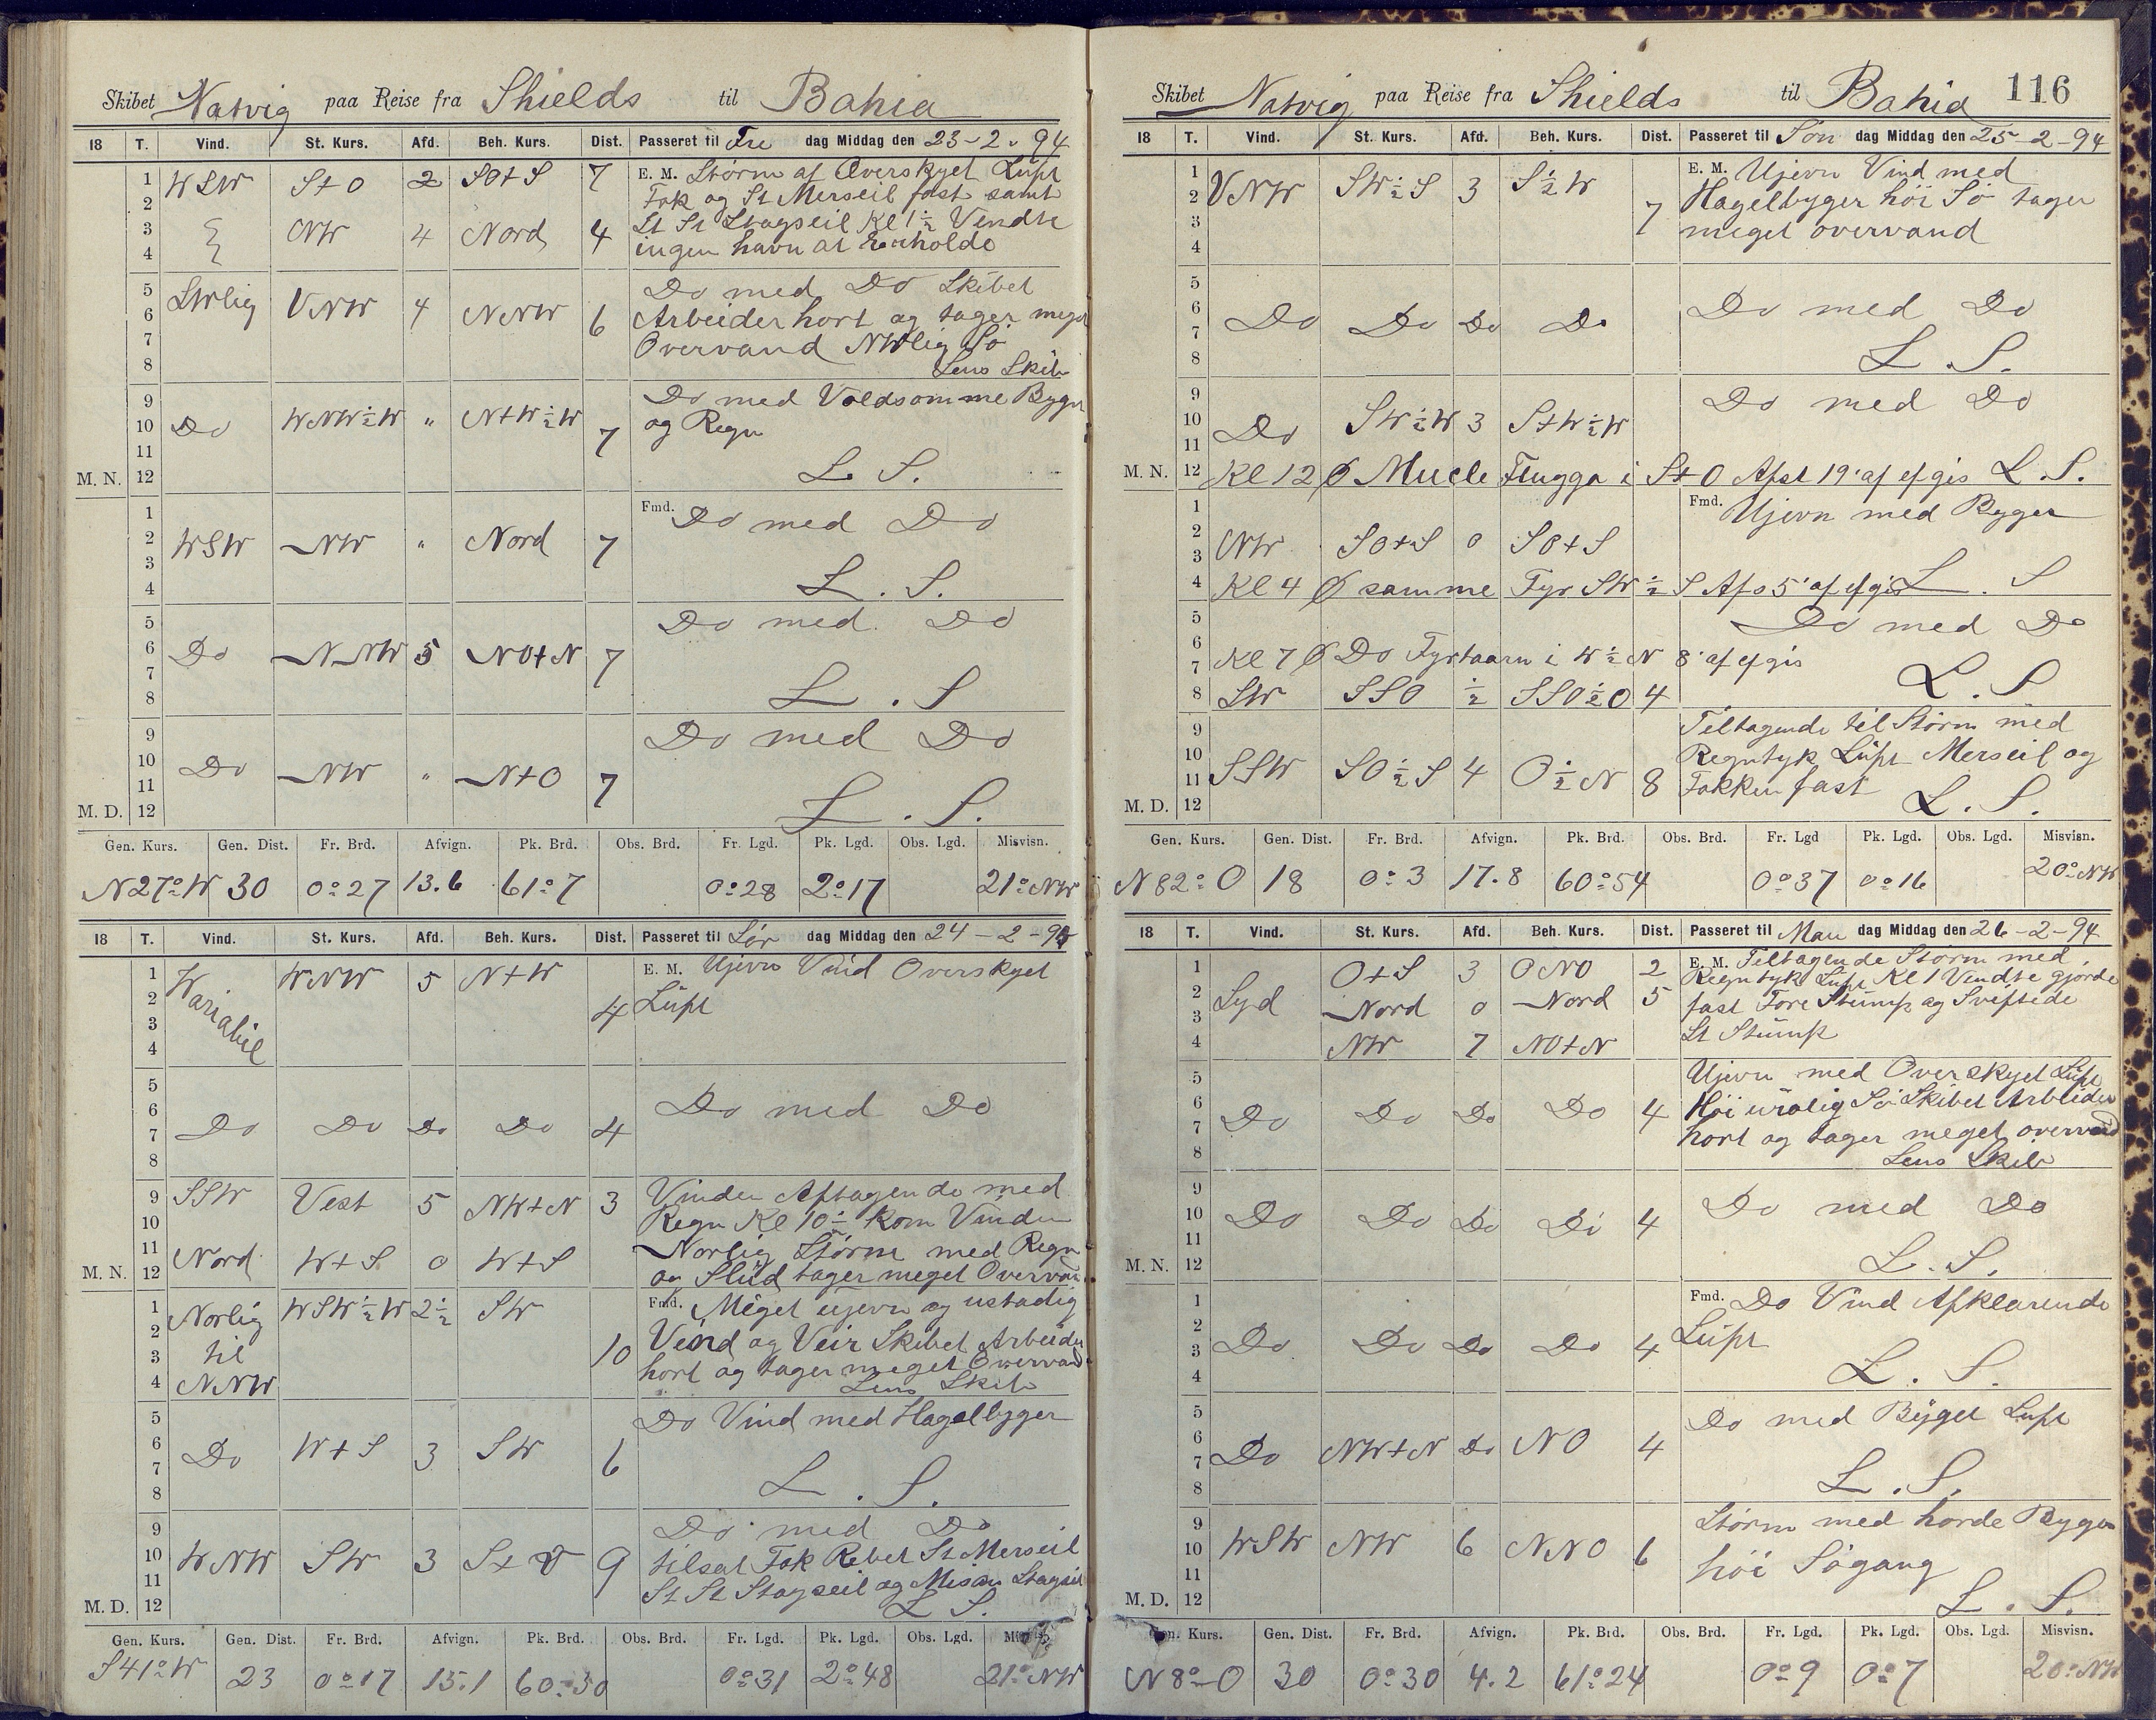 Skibet Natvig paa Reise fra Shields til Bahia
18 T. Vind. St. Kurs. Afd. Beh. Kurs. Dist. Passeret til Fre dag Middag den 23-2-94
1 WSW St0 2 SO+S 7 E. M. Störm af Overskyet Lüft
2 Fok og St Merseil fast samt
3 NW 4 Nord 4 St St Stagseil Kl 1½ Vendte
4 ingen havn at Erholde
5 Do med Do Skibet
6 SWlig VNW 4 NNW 6 Arbeider hort og tager meget
7 Overvand NWlig Sö
8 Lens Skib
9 Do med Voldsomme Byger
10 Do WNW½W " N+W½W 7 og Regn
11
M. N. 12 L. S.
1 Fmd. Do med Do
2 WSW NW " Nord 7
3
4 L. S.
5 Do med Do
6 Do NNW 5 NO+N 7
7
8 L. S
9 Do med Do
10 Do NW " N+O 7
11
M. D. 12 L. S.
Gen. Kurs. Gen. Dist. Fr. Brd. Afvign. Pk. Brd. Obs. Brd. Fr. Lgd. Pk. Lgd. Obs. Lgd. Misvisn.
N27°W 30 0°27 13.6 61°7 0°28 2°17 21°NW
18 T. Vind. St. Kurs. Afd. Beh. Kurs. Dist. Passeret til Lör dag Middag den 24-2-94
1 Wariabil WNW 5 N+W 4 E. M. Ujevn Vind Overskyet
2 Lüft
3
4
5
6 Do Do Do Do 4 Do med Do
7
8
9 SSW Vest 5 NW+N 3 Vinden Aftagende med
10 Regn Kl 10½ kom Vinden
11 Nord W+S 0 W+S Norlig Störm med Regn
M. N. 12 og Slüd tager meget Overvan
1 Norlig WSW½W 2½ SW Fmd. Meget ujevn og ustadig
2 til 10 Vind og Veir Skibet Arbeider
3 hort og tager meget Overvand
4 NNW Lens Skib
5 Do Vind med Hagelbyger
6 Do W+S 3 SW 6
7
8 L. S.
9 Do med Do
10 WNW SW 3 S+V 9 tilsat Fok Rebet St Merseil
11 St St Stagseil og Misan Stagseil
M. D. 12 L S.
Gen. Kurs. Gen. Dist. Fr. Brd. Afvign. Pk. Brd. Obs. Brd. Fr. Lgd. Pk. Lgd. Obs. Lgd. Misvisn.
S41°W 23 0°17 15.1 60°50 0°31 2°48 21°NW
Skibet Natvig paa Reise fra Shields til Bahia 116
18 T. Vind. St. Kurs. Afd. Beh. Kurs. Dist. Passeret til Sön dag Middag den 25-2-94
1 E. M. Ujevn Vind med
2 VNW SW½S 3 S½W 7 Hagelbyger höi Sö tager
3 meget overvand
4
5
6 Do Do Do Do Do med Do
7
8 L. S.
9 Do med Do
10 Do SW½W 3 S+W½W
11
M. N. 12 Kl 12 Ø Mucle Flugga i S+O Afst 19' af efgis L. S.
1 Fmd. Ujevn med Byger
2 NW SO+S 0 SO+S
3
4 Kl 4 Ø samme Fyr SW½S Afs 5' af efgis L. S
5 Do med Do
6
7 Kl 7 Ø Do Fyrtaarn i W½N 8' af efgis
8 SW SSO ½ SSO½O 4 L. S
9 Tiltagende til Störm med
10 Regntyk Lüft Merseil og
11 SSW SO½S 4 O½N 8 Fokken fast
M. D. 12 L. S.
Gen. Kurs. Gen. Dist. Fr. Brd. Afvign. Pk. Brd. Obs. Brd. Fr. Lgd Pk. Lgd. Obs. Lgd. Misvisn.
N82°O 18 0°3 17.8 60°54 0°37 0°16 20°NW
18 T. Vind. St. Kurs. Afd. Beh. Kurs. Dist. Passeret til Man dag Middag den 26-2-94
1 O+S 3 ONO 2 E. M. Tiltagende Störm med
2 Syd Nord 0 Nord 5 Regntyk Lüft Kl 1 Vendte gjorde
3 fast Fore Stump og Sviftede
4 NW 7 NO+N St Stümp
5 Ujevn med Overskyet Lüft
6 Do Do Do Do 4 Höi urolig Sö Skibet Arbeider
7 hort og tager meget overvand
8 Lens Skib
9 Do med Do
10 Do Do Do Do 4
11
M. N. 12 L. S.
1 Fmd. Do Vind Afklarende
2 Do Do Do Do 4 Lüft
3
4 L. S.
5 Do med Byget Luft
6 Do NW+N Do NO 4
7
8 L. S.
9 Störm med horde Byger
10 WSW NW 6 NNO 6 höi Sögang
11
M. D. 12 L. S.
Gen. Kurs. Gen. Dist. Fr. Brd. Afvign. Pk. Brd. Obs. Brd. Fr. Lgd. Pk. Lgd. Obs. Lgd. Misvisn.
N8°O 30 0°30 4.2 61°24 0°9 0°7 20°NW